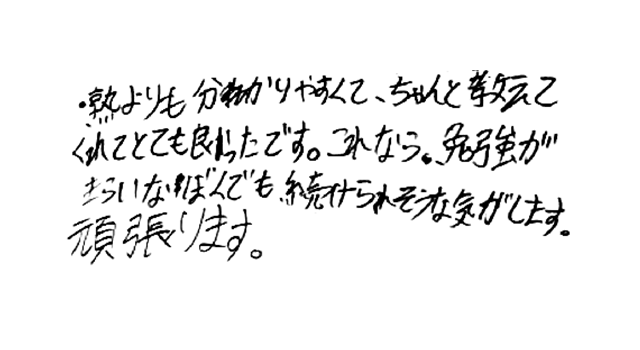 ・熟よりも分かりやすくて、ちゃんと教えて
くれてとても良かったです。これなら、勉強が
きらいなぼくでも、続けられそうな気がします。
頑張ります。